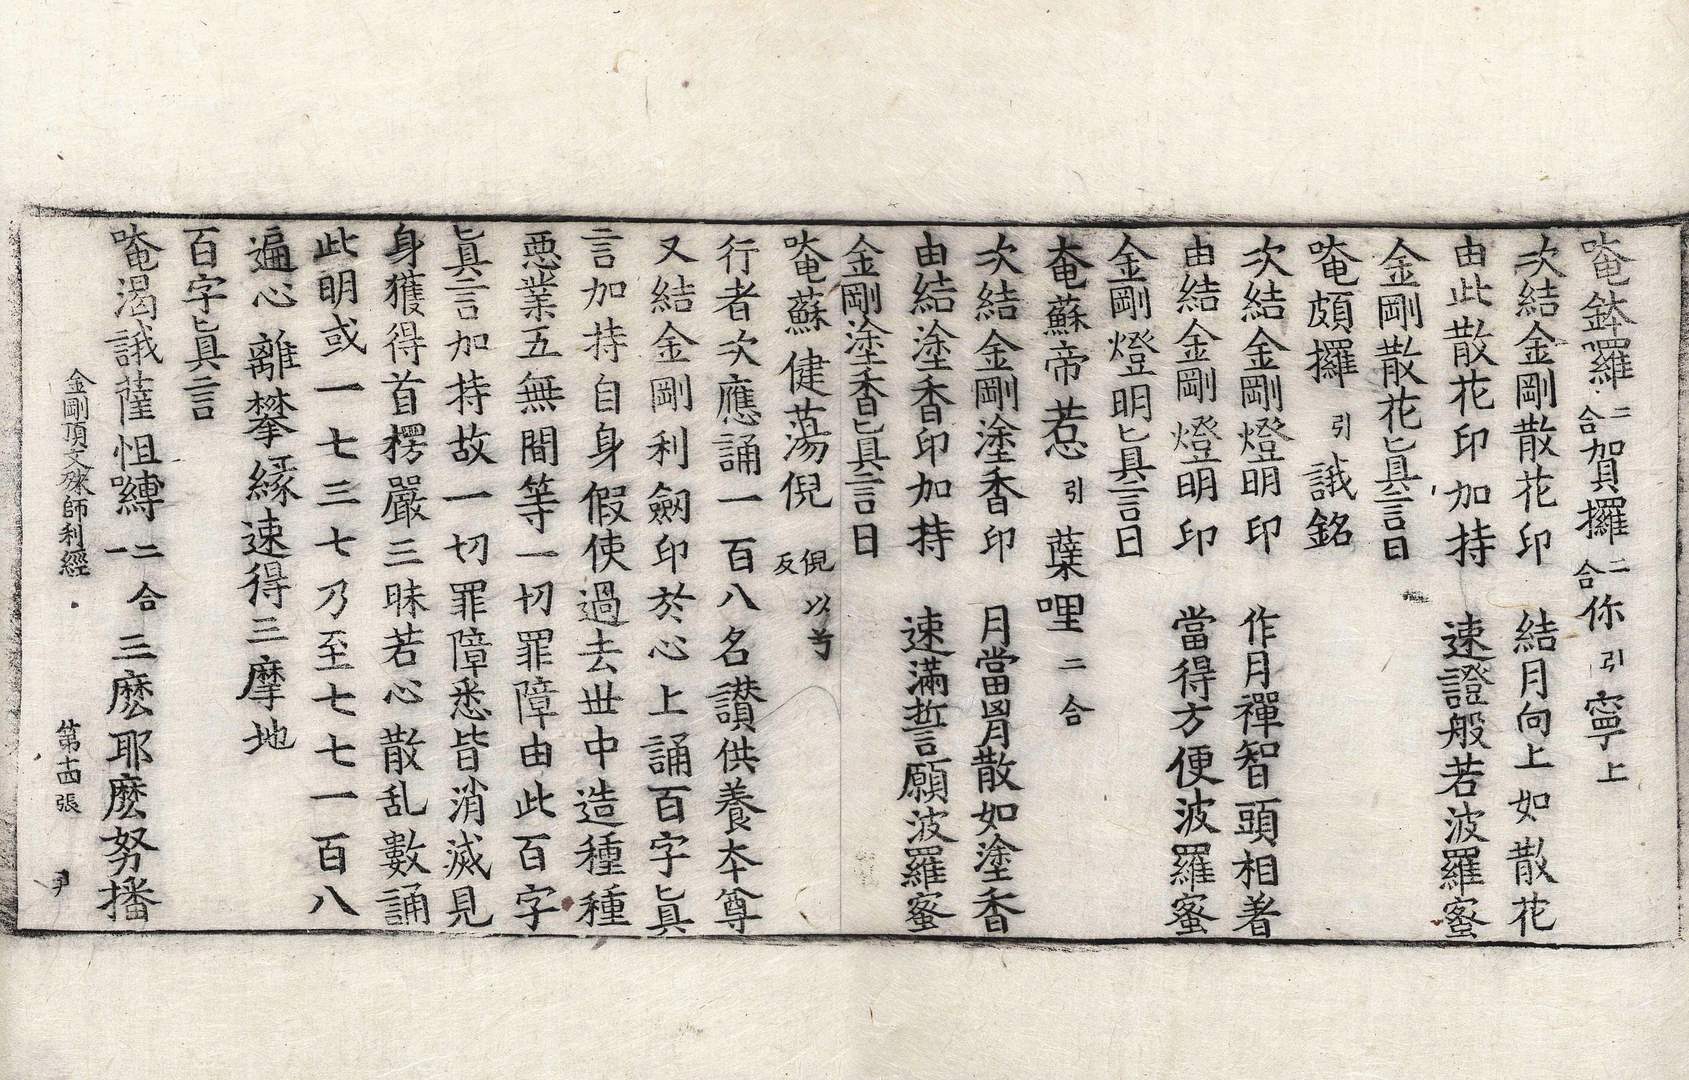 唵鉢囉二合賀攞二合你引寧上
次結金剛散花印　結月向上如散花
由此散花印加持　速證般若波羅蜜
金剛散花眞言曰
唵頗攞引誐銘
次結金剛燈明印　作月禪智頭相著
由結金剛燈明印　當得方便波羅蜜
金剛燈明眞言曰
唵蘇帝惹引蘖哩二合
次結金剛塗香印　月當胷散如塗香
由結塗香印加持　速滿誓願波羅蜜
金剛塗香眞言曰
唵蘇健蕩倪倪以反
行者次應誦一百八名讃供養本尊
又結金剛利劒印於心上誦百字眞
言加持自身假使過去世中造種種
惡業五無間等一切罪障由此百字
眞言加持故一切罪障悉皆消滅見
身獲得首楞嚴三昧若心散乱數誦
此明或一七三七乃至七七一百八
遍心離攀緣速得三摩地
百字眞言
唵渴誐薩怛嚩二合一三麽耶麽努播
金剛頂文殊師利經　第十四張　尹